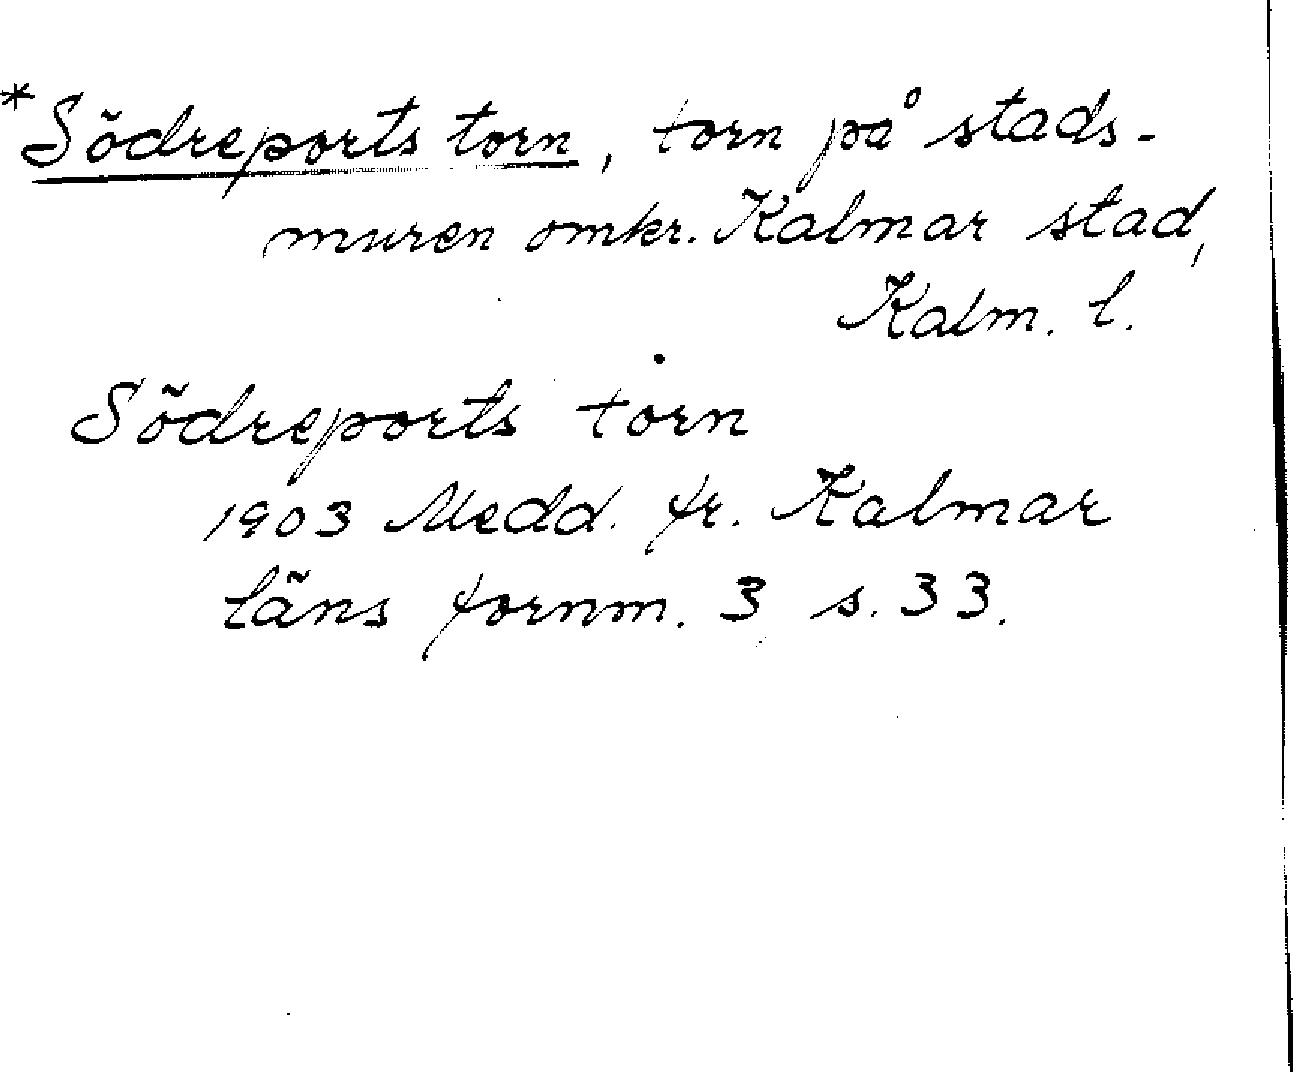 *Södreports torn, torn på stads-
muren omkr. Kalmar stad,
Kalm. l.
Södreports torn
1903 Medd. fr. Kalmar
läns fornm. 3 s. 33.